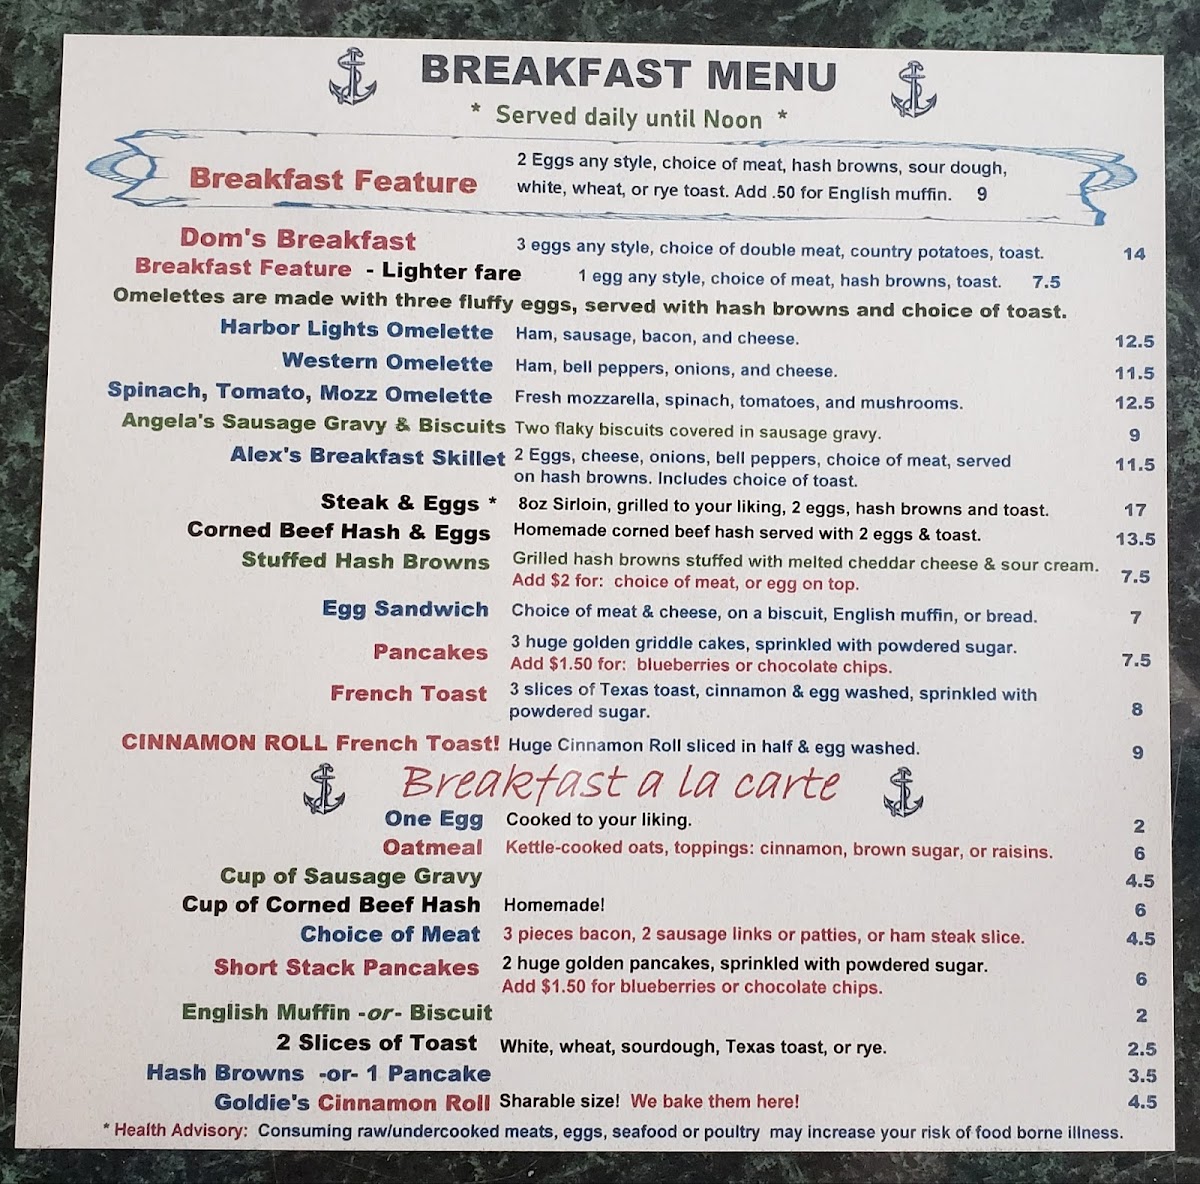 BREAKFAST MENU
* Served daily until Noon *
Breakfast Feature 2 Eggs any style, choice of meat, hash browns, sour dough,
white, wheat, or rye toast. Add .50 for English muffin. 9
Dom's Breakfast 3 eggs any style, choice of double meat, country potatoes, toast. 14
Breakfast Feature - Lighter fare 1 egg any style, choice of meat, hash browns, toast. 7.5
Omelettes are made with three fluffy eggs, served with hash browns and choice of toast.
Harbor Lights Omelette Ham, sausage, bacon, and cheese. 12.5
Western Omelette Ham, bell peppers, onions, and cheese. 11.5
Spinach, Tomato, Mozz Omelette Fresh mozzarella, spinach, tomatoes, and mushrooms. 12.5
Angela's Sausage Gravy & Biscuits Two flaky biscuits covered in sausage gravy. 9
Alex's Breakfast Skillet 2 Eggs, cheese, onions, bell peppers, choice of meat, served 11.5
on hash browns. Includes choice of toast.
Steak & Eggs * 8oz Sirloin, grilled to your liking, 2 eggs, hash browns and toast. 17
Corned Beef Hash & Eggs Homemade corned beef hash served with 2 eggs & toast. 13.5
Stuffed Hash Browns Grilled hash browns stuffed with melted cheddar cheese & sour cream. 7.5
Add $2 for: choice of meat, or egg on top.
Egg Sandwich Choice of meat & cheese, on a biscuit, English muffin, or bread. 7
Pancakes 3 huge golden griddle cakes, sprinkled with powdered sugar. 7.5
Add $1.50 for: blueberries or chocolate chips.
French Toast 3 slices of Texas toast, cinnamon & egg washed, sprinkled with
powdered sugar. 8
CINNAMON ROLL French Toast! Huge Cinnamon Roll sliced in half & egg washed. 9
Breakfast a la carte
One Egg Cooked to your liking. 2
Oatmeal Kettle-cooked oats, toppings: cinnamon, brown sugar, or raisins. 6
Cup of Sausage Gravy 4.5
Cup of Corned Beef Hash Homemade! 6
Choice of Meat 3 pieces bacon, 2 sausage links or patties, or ham steak slice. 4.5
Short Stack Pancakes 2 huge golden pancakes, sprinkled with powdered sugar. 6
Add $1.50 for blueberries or chocolate chips.
English Muffin -or- Biscuit 2
2 Slices of Toast White, wheat, sourdough, Texas toast, or rye. 2.5
Hash Browns -or- 1 Pancake 3.5
Goldie's Cinnamon Roll Sharable size! We bake them here! 4.5
* Health Advisory: Consuming raw/undercooked meats, eggs, seafood or poultry may increase your risk of food borne illness.